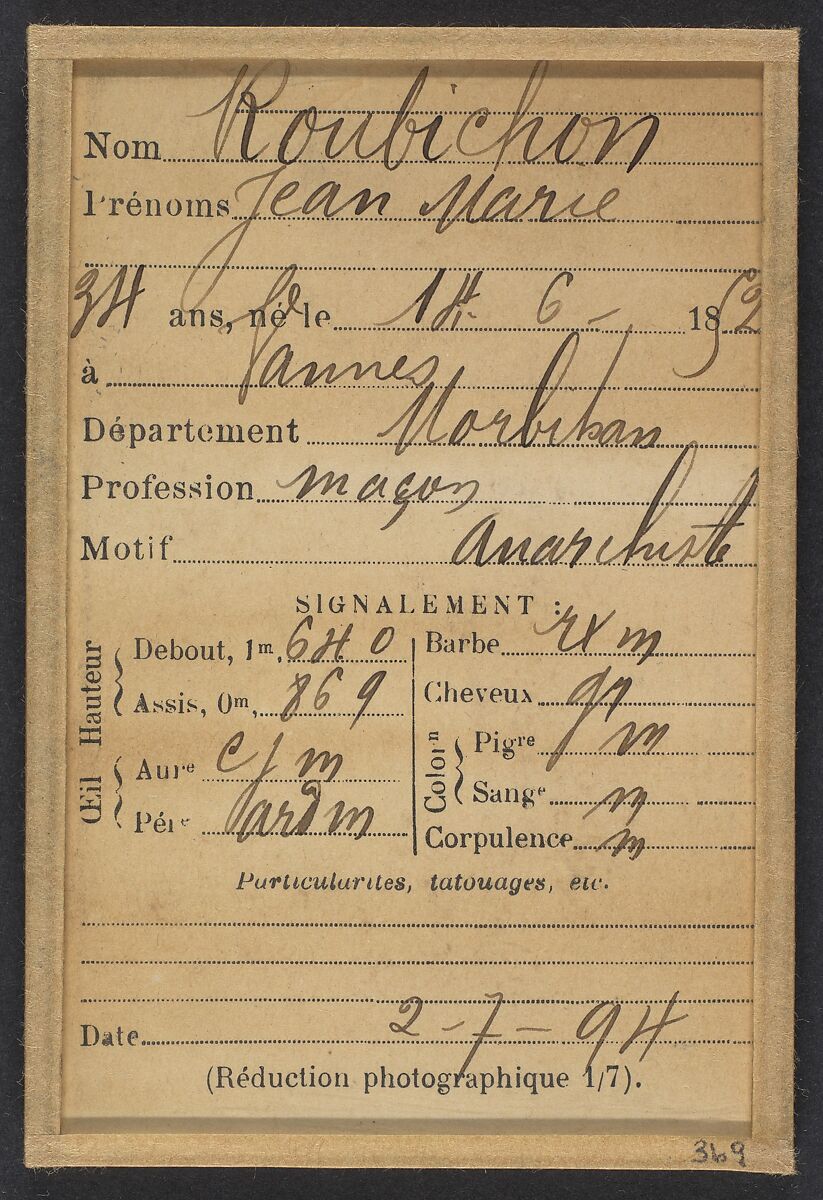 Nom Roubichon
Prénoms Jean Marie
34 ans, né le 14. 6 - 1852
à Vannes
Département Morbihan
Profession maçon
Motif anarchiste
SIGNALEMENT :
Hauteur
Debout, 1m, 64 0
Assis, 0m, 869
Œil
Aure c j m
Pére ard m
Barbe rx m
Cheveux
Colorn
Pigre m
Sange m
Corpulence m
Particularites, tatouages, etc.
Date 2 - 7 - 94
(Réduction photographique 1/7).
369